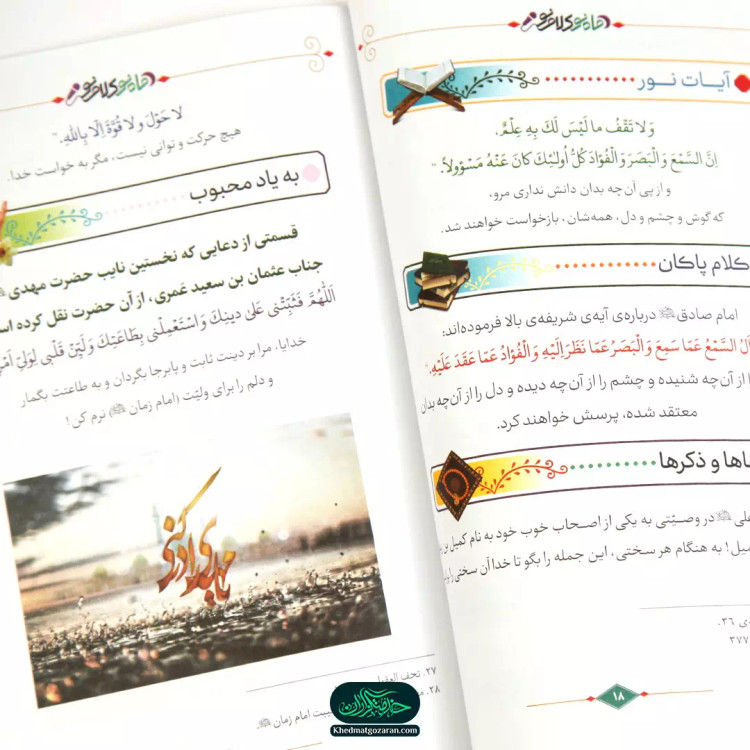 آیـات نــور
وَلا تَقْفُ ما لَیْسَ لَكَ بِهِ عِلْمٌ.
اِنَّ السَّمْعَ وَ الْبَصَرَ وَ الْفُؤادَ كُلُّ اُولـٰئِكَ كانَ عَنْهُ مَسْؤُولاً."
و از پی آن‌چه بدان دانش نداری مرو،
که گوش و چشم و دل، همه‌شان، بازخواست خواهند شد.
کلام پاکان
امام صادق ﷺ درباره‌ی آیه‌ی شریفه‌ی بالا فرموده‌اند:
السَّمْعُ عَمّا سَمِعَ وَ الْبَصَرُ عَمّا نَظَرَ اِلَیْهِ وَ الْفُؤادُ عَمّا عَقَدَ عَلَیْهِ."
را از آن‌چه شنیده و چشم را از آن‌چه دیده و دل را از آن‌چه بدان
معتقد شده، پرسش خواهند کرد.
و ذکرها
در وصیّتی به یکی از اصحاب خوب خود به نام کمیل
! به هنگام هر سختی، این جمله را بگو تا خدا آن سختی را
۳۶.
۱۸
لا حَوْلَ وَ لا قُوَّةَ اِلّا بِاللّٰهِ."
هیچ حرکت و توانی نیست، مگر به خواست خدا.
به یاد محبوب
قسمتی از دعایی که نخستین نایب حضرت مهدی
جناب عثمان بن سعید عَمری، از آن حضرت نقل کرده
اَللّٰهُمَّ فَثَبِّتْنی عَلیٰ دینِكَ وَ اسْتَعْمِلْنی بِطاعَتِكَ وَ لَیِّنْ قَلْبی لِوَلِیِّ
خدایا، مرا بر دینت ثابت و پابرجا بگردان و به طاعتت بگمار
و دلم را برای ولیّت (امام زمان ﷺ) نرم کن!
۲۷. تحف العقول
۲۸.
غیبت امام زمان ﷺ.
Khedmatgozaran.com